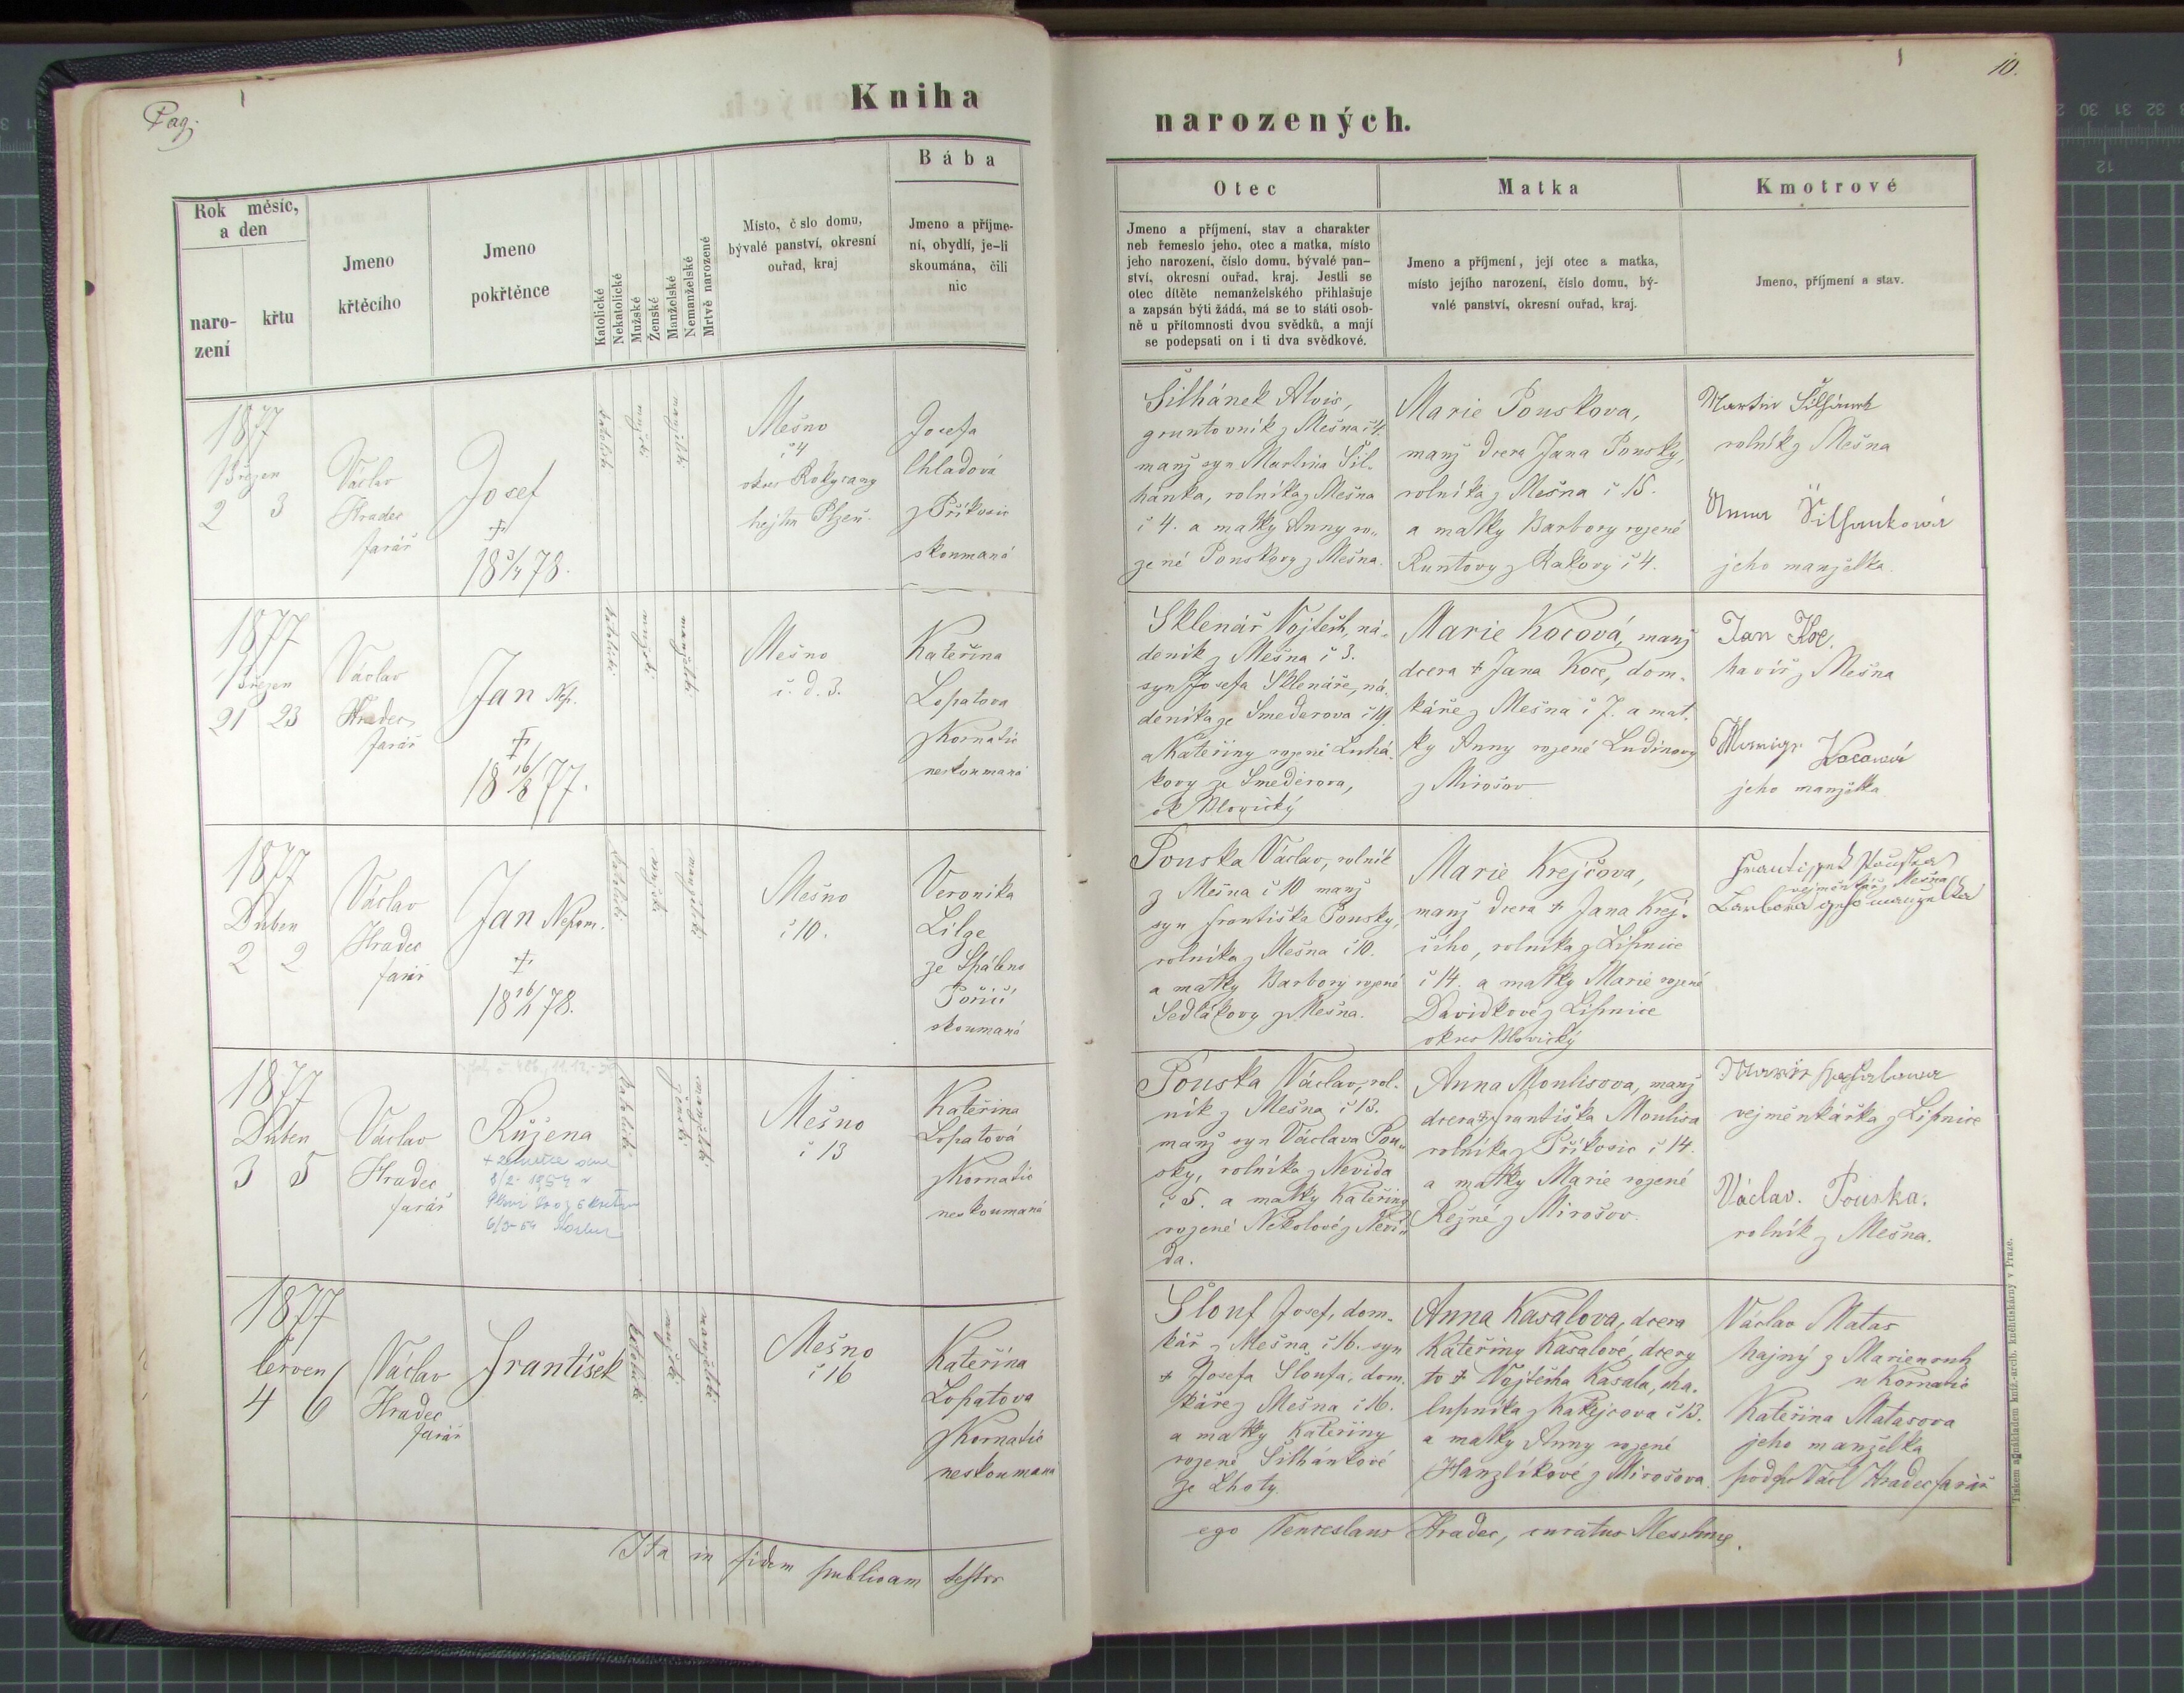 Pag.
Kniha
Rok měsíc,
a den
naro-
zení
křtu
Jmeno
křtěcího
Jmeno
pokřtěnce
Katolické
Nekatolické
Mužské
Ženské
Manželské
Nemanželské
Mrtvě narozené
Místo, č slo domu,
bývalé panství, okresní
ouřad, kraj
Bába
Jmeno a příjme-
ní, obydlí, je-li
skoumána, čili
nic
1877
Březen
2 3
Václav
Hradec
farář
Josef
✝
18 3/4 78.
katolické
mužské
manželské
Mešno
č 4
okres Rokycany
hejtm Plzeň.
Josefa
Chladová
z Příkosic
skoumaná
1877
Březen
21 23
Václav
Hradec
farář
Jan Nep.
✝
18 16/8 77.
katolické
mužské
manželské
Mešno
č. d. 3.
Kateřina
Lopatova
z Kornatic
neskoumaná
1877
Duben
2 2
Václav
Hradec
farář
Jan Nepom.
✝
katolické
mužské
manželské
Mešno
č 10.
Veronika
Lilge
ze Spáleno
Poříčí
skoumaná
1877
Duben
3 5
Václav
Hradec
farář
Růžena
+ zemřela dne
8/2 1954 v
6/3-54
katolické
ženské
manželské
Mešno
č 13
Kateřina
Lopatová
z Kornatic
neskoumaná
1877
Červen
4 6
Václav
Hradec
farář
František
katolické
mužské
manželské
Mešno
č 16
Kateřina
Lopatova
z Kornatic
neskoumaná
Ita in fidem publicam testor
10.
narozených.
Otec
Jmeno a příjmení, stav a charakter
neb řemeslo jeho, otec a matka, místo
jeho narození, číslo domu, bývalé pan-
ství, okresní ouřad, kraj. Jestli se
otec dítěte nemanželského přihlašuje
a zapsán býti žádá, má se to státi osob-
ně u přítomnosti dvou svědků, a mají
se podepsati on i ti dva svědkové.
Matka
Jmeno a příjmení, její otec a matka,
místo jejího narození, číslo domu, bý-
valé panství, okresní ouřad, kraj.
Kmotrové
Jmeno, příjmení a stav.
Šilhánek Alois,
gruntovník z Mešna č 4.
manž syn Martina Šil-
hánka, rolníka z Mešna
č 4. a matky Anny ro-
zené Pouskovy z Mešna.
Marie Pouskova,
manž dcera Jana Pousky,
rolníka z Mešna č 15.
a matky Barbory rozené
Runtovy z Rakovy č 4.
Martin Šilhánek
rolník z Mešna
Anna Šilhanková
jeho manželka.
Sklenář Vojtěch, ná-
deník z Mešna č 3.
syn Josefa Sklenáře, ná-
deníka ze Smederova č 19.
a Kateřiny rozené Luhá-
kovy ze Smederova,
ok Blovický
Marie Kocová, manž
dcera ✝ Jana Koce, dom-
káře z Mešna č 7. a mat-
ky Anny rozené Ludinovy
z Mirošov
Jan Koc.
havíř z Mešna
Kocowá
jeho manželka
Pouska Václav, rolník
z Mešna č 10 manž
syn Františka Pousky,
rolníka z Mešna č 10.
a matky Barbory rozené
Sedlákovy z Mešna.
Marie Krejčova,
manž dcera ✝ Jana Krej-
čího, rolníka z Lipnice
č 14. a matky Marie rozené
Davidkové z Lipnice
okres Blovický
Frantissek Pouska
vejměnkář z Mešna
Barbora geho manzelka
Pouska Václav, rol-
ník z Mešna č 13.
manž syn Václava Pou-
sky, rolníka z Nevida
č 5. a matky Kateřiny
rozené Nekolové z Nevi-
da.
Anna Moulisova, manž
dcera ✝ Františka Moulisa
rolníka z Příkosic č 14.
a matky Marie rozené
z Mirošov.
vejměnkářka z Lipnice
Václav. Pouska.
rolník z Mešna.
Slouf Josef, dom-
kář z Mešna č 16. syn
✝ Josefa Sloufa, dom-
káře z Mešna č 16.
a matky Kateřiny
rozené Šilhánkové
ze Lhoty.
Anna Kasalova, dcera
Kateřiny Kasalové, dcery
to ✝ Vojtěcha Kasala, cha-
lupníka z Kakejcova č 13.
a matky Anny rozené
Hanzlíkové z Mirošova.
Václav Matas
hajný z Marienruh
u Kornatic
Kateřina Matasova
jeho manželka
podps Václ Hradec farář
ego Venceslaus Hradec, curatus